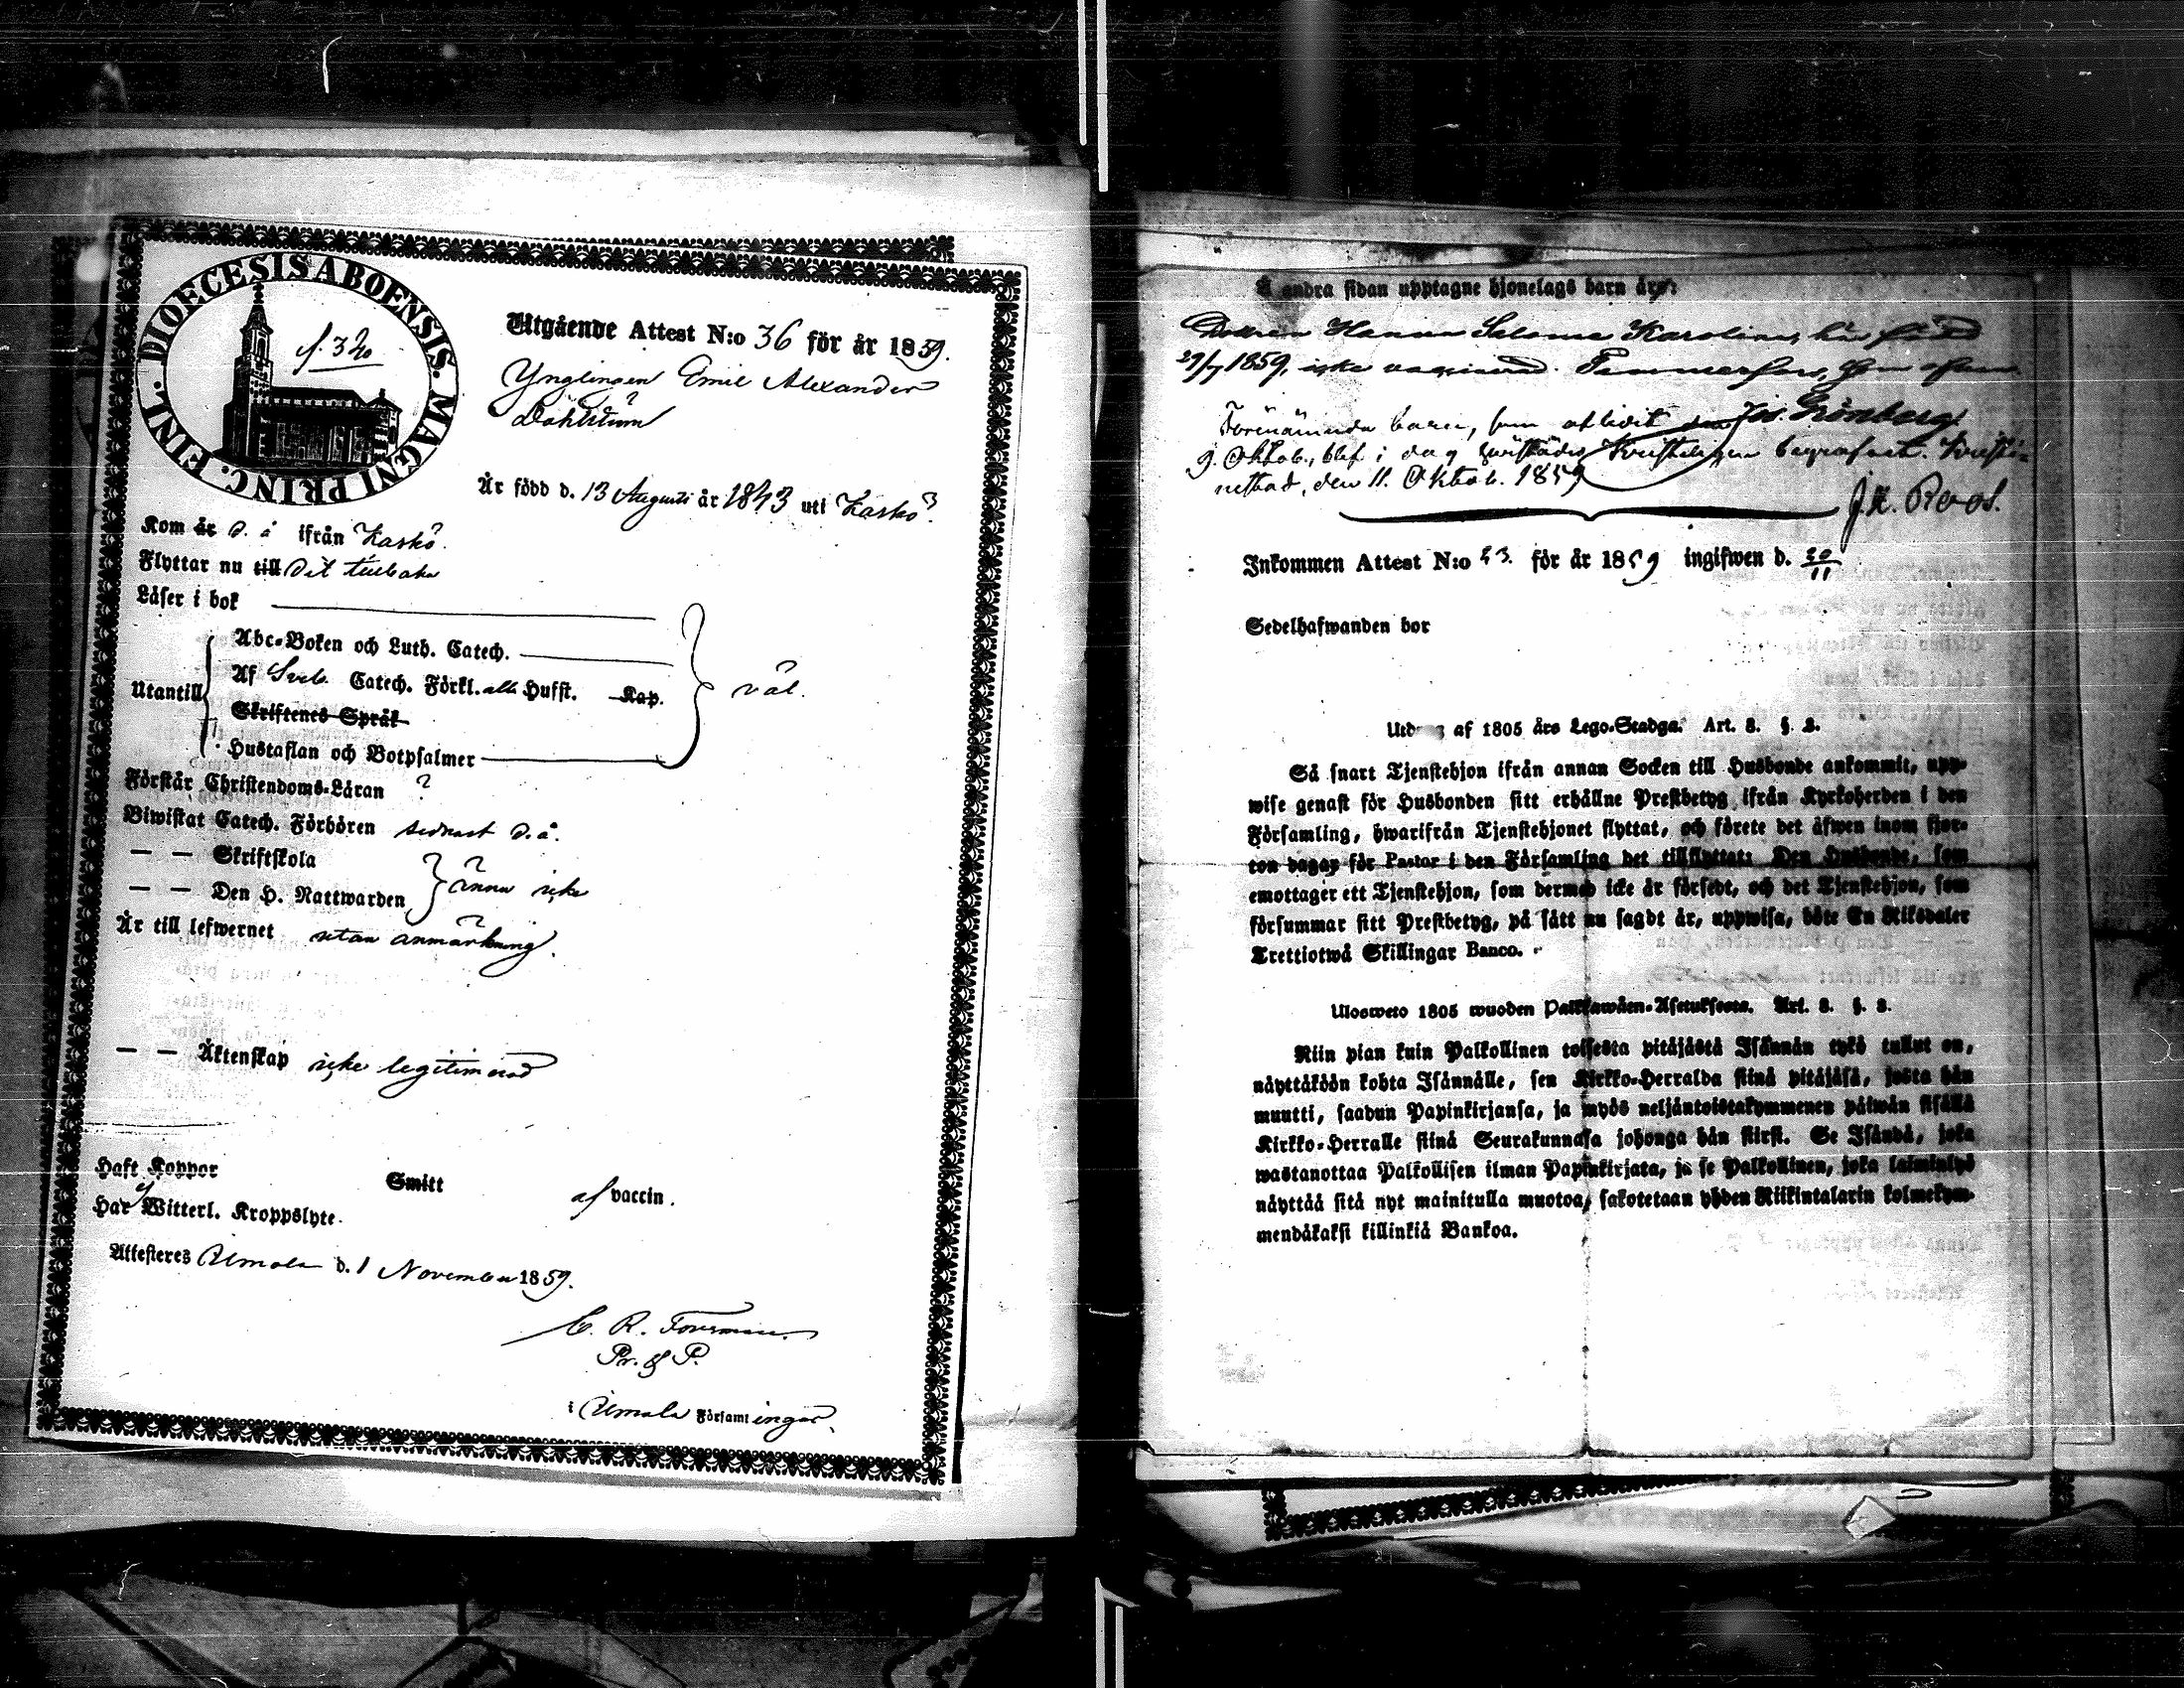 DIOECESIS ABOENSIS. MAGNI PRINC. FINL.
Utgående Attest N:o 36 för år 1859.
Ynglingen Emil Alexander
Är född d. 13 Augusti år 1843 uti Kaskö.
Kom år d. å ifrån Kaskö.
Flyttar nu till Dit tillbaka
Läser i bok
Utantill
Abc-Boken och Luth. Catech.
Af Sveb. Catech. Förkl. alla Hufst. Kap.
väl.
Skriftenes Språk
Hustaflan och Botpsalmer
Förstår Christendoms-Läran
Biwistat Catech. Förhören sednast d. å.
— — Skriftskola
— — Den H. Nattwarden
ännu icke
Är till lefwernet utan anmärkning.
— — Äktenskap icke legitimerad
Haft Koppor Smitt af vaccin.
Har ej Witterl. Kroppslyte.
Attesteres Ulmala d. 1 November 1859.
C. R. Forsman
Pr. & P.
i Ulmala Församlingar.
Å andra sidan upptagne hjonelags barn äro:
Hanna Salome Karolina, här född
29/7 1859, icke vaccinerad.
Jos. Grönberg
Förenämnda barn, som aflidit den
9. Oktob., blef i dag härstädes Kristeligen begrafvet. Kristi-
nestad, den 11. Oktob. 1859
J. K. Roos.
Inkommen Attest N:o 23. för år 1859 ingifwen d. 20/11
Sedelhafwanden bor
Utdrag af 1805 års Lego-Stadga. Art. 8. §. 2.
Så snart Tjenstehjon ifrån annan Socken till Husbonde ankommit, upp-
wise genast för Husbonden sitt erhållne Prestbetyg ifrån Kyrkoherden i den
Församling, hwarifrån Tjenstehjonet flyttat, och förete det äfwen inom fjor-
ton dagar för Pastor i den Församling det tillflyttat: Den Husbonde, som
emottager ett Tjenstehjon, som dermed icke är försedt, och det Tjenstehjon, som
försummar sitt Prestbetyg, på sätt nu sagdt är, uppwisa, böte En Riksdaler
Trettiotwå Skillingar Banco.
Ulosweto 1805 wuoden Palkkawäen-Asetuksesta. Art. 8. §. 2.
Niin pian kuin Palkollinen toisesta pitäjästä Isännän tykö tullut on,
näyttäköön kohta Isännälle, sen Kirkko-Herralda siinä pitäjäsä, josta hän
muutti, saadun Papinkirjansa, ja myös neljäntoistakymmenen päiwän sisällä
Kirkko-Herralle siinä Seurakunnasa johonga hän siirsi. Se Isändä, joka
wastanottaa Palkollisen ilman Papinkirjata, ja se Palkollinen, joka laiminlyö
näyttää sitä nyt mainitulla muotoa, sakotetaan yhden Riikintalarin kolmekym-
mendäkaksi killinkiä Bankoa.